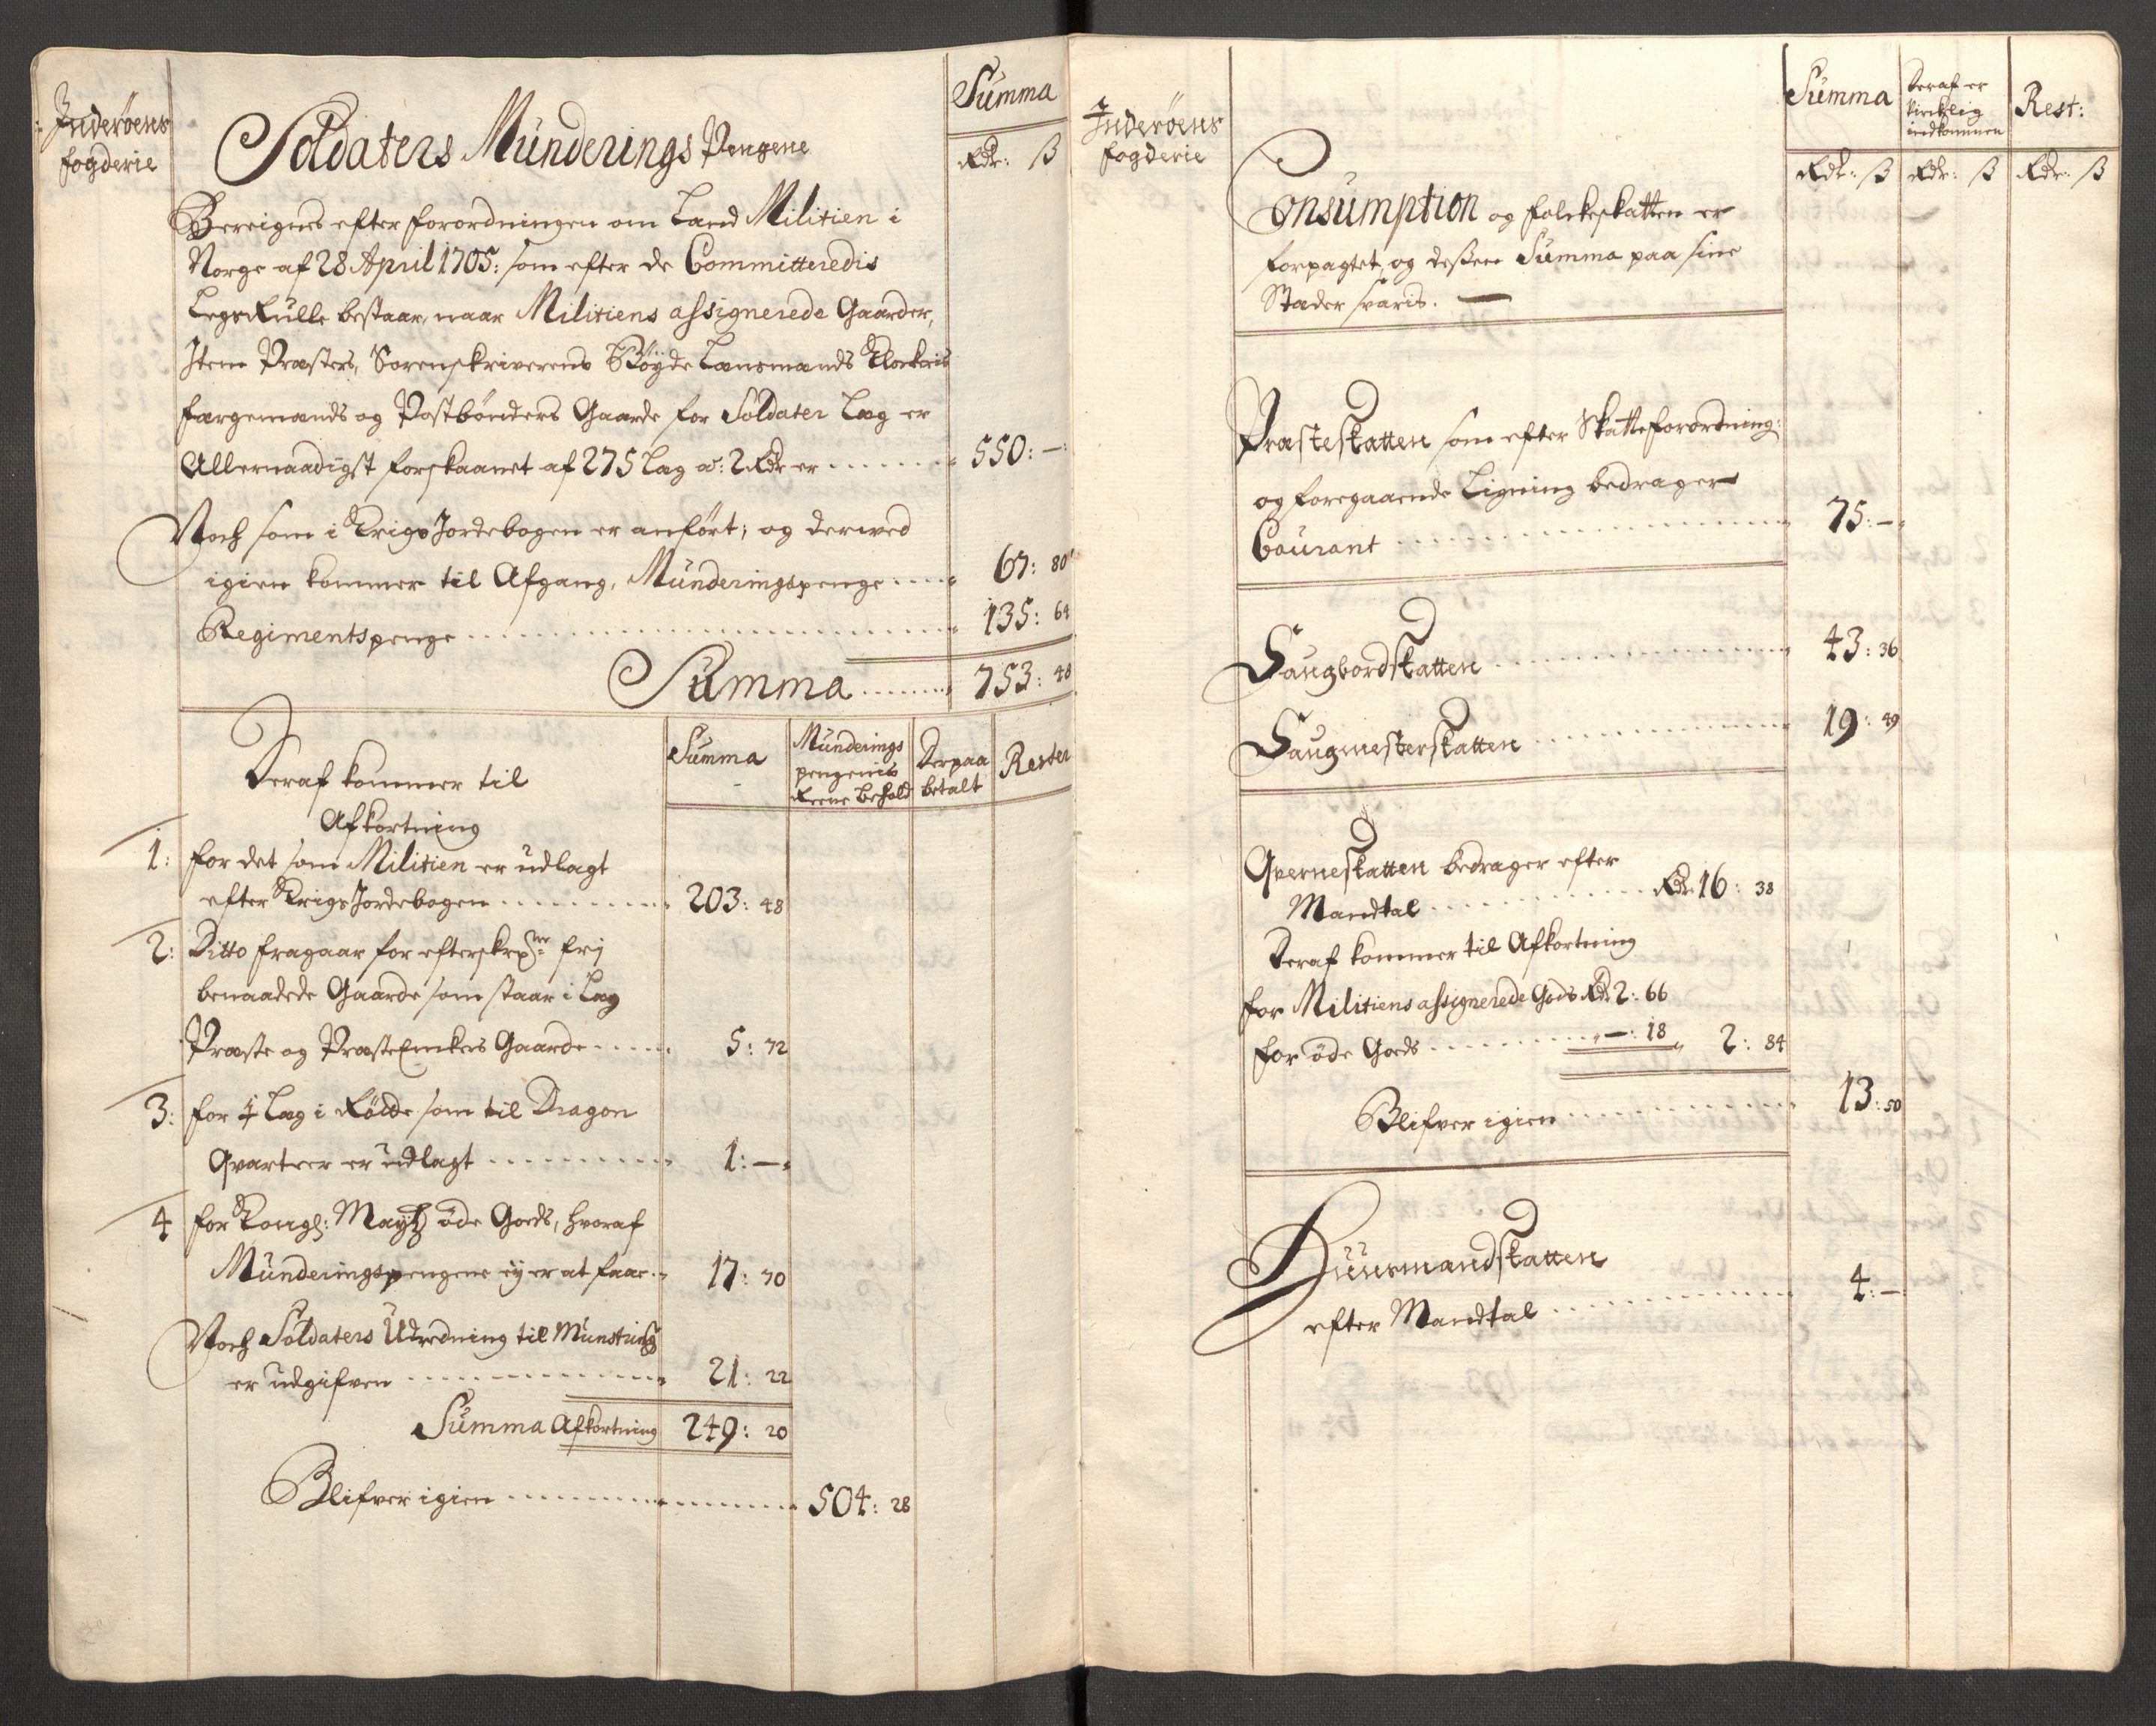 Inderöens
fogderie
Summa
Rdr: ß
Soldaters Münderings Pengene
Bereignes efter forordningen om Land Militien i
Norge af 28 April 1705: som efter de Committeredis
LegsRulle bestaar, naar Militiens assignerede Gaarder,
Item Præsters, Sorenskriverens Böyde Lænsmands Klockeris
færgemænds og Postbönders Gaarde for Soldater Læg er
Allernaadigst forskaanet af 275 Læg a: 2 Rdr er 550: —:
Noch som i Krigs Jordebogen er anfört; og derved
igien kommer til Afgang, Münderingspenge 67: 80
Regimentspenge 135: 64
Summa 753: 48
Deraf kommer til
Afkortning
Summa
Münderings
pengenis
Reene behold
Derpaa
betalt
Rester
1: for det som Militien er udlagt
efter Krigs Jordebogen 203: 48
2: Ditto fragaar for efterskrne frj
benaadede Gaarde som staar i Læg
Præste og PræsteEnkers Gaarde 5: 72
3: for ½ Læg i som til Dragon
Qvarteer er udlagt 1: —:
4 for Kongl: Mayts öde Goeds, hvoraf
Münderingspengene ey er at faae 17: 70
Noch Soldaters Udredning til Münstrings
er udgifven 21: 22
Summa Afkortning 249: 20
Blifver igien 504: 28
Inderöens
fogderie
Summa
Deraf er
virchlig
indkommen
Rest:
Rdr: ß Rdr: ß Rdr: ß
Consumption og folckeskatten er
forpagtet, og dessen Summa paa sine
Stæder svaris. —
Præsteskatten som efter Skatteforordning:
og foregaaende Ligning bedrager
Courant 75: —
Saugbordskatten 43: 36
Saugmesterskatten 19: 49
Qverneskatten bedrager efter
Mandtal Rdr 16: 38
Deraf kommer til Afkortning
for Militiens assignerede Gods Rdr 2: 66
for öde Goeds —: 18 2: 84
Blifver igien 13: 50
Huusmandskatten
efter Mandtal 4: —